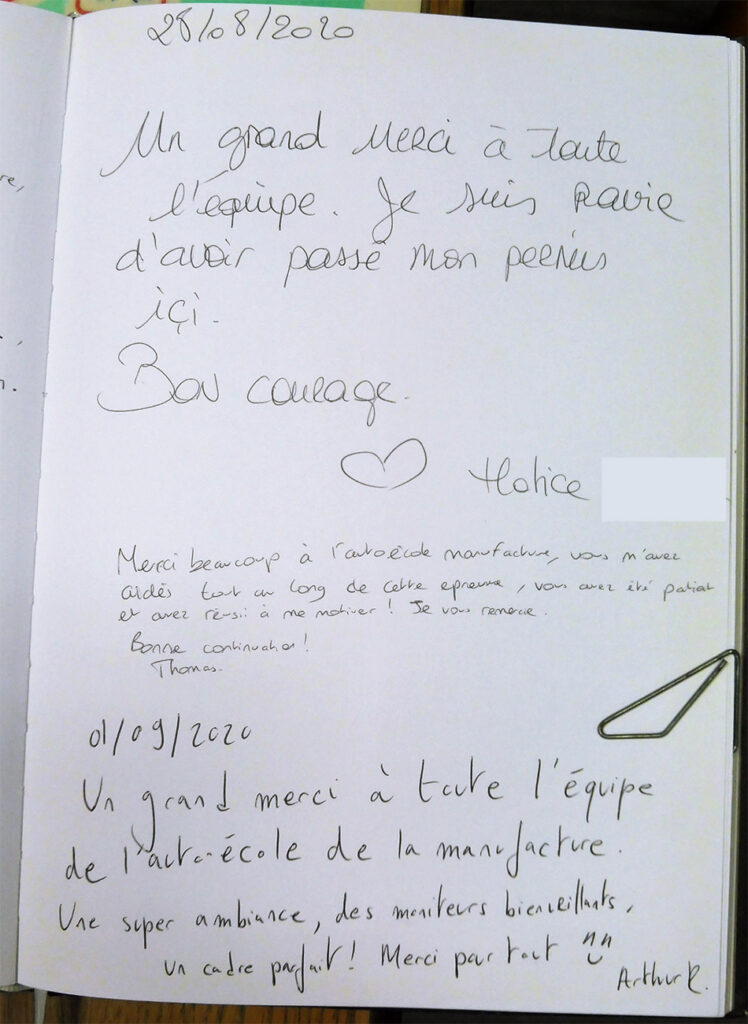 28/08/2020
Un grand Merci à toute
l'équipe. Je suis Ravie
d'avoir passé mon permis
içi.
Bon courage.
Hatice
Merci beaucoup à l'autoécole manufacture, vous m'avez
aidés tout au long de cette epreuve, vous avez été patient
et avez réussi à me motiver ! Je vous remercie.
Bonne continuation !
Thomas.
01/09/2020
Un grand merci à toute l'équipe
de l'auto-école de la manufacture.
Une super ambiance, des moniteurs bienveillants,
un cadre parfait ! Merci pour tout
Arthur R.
re,